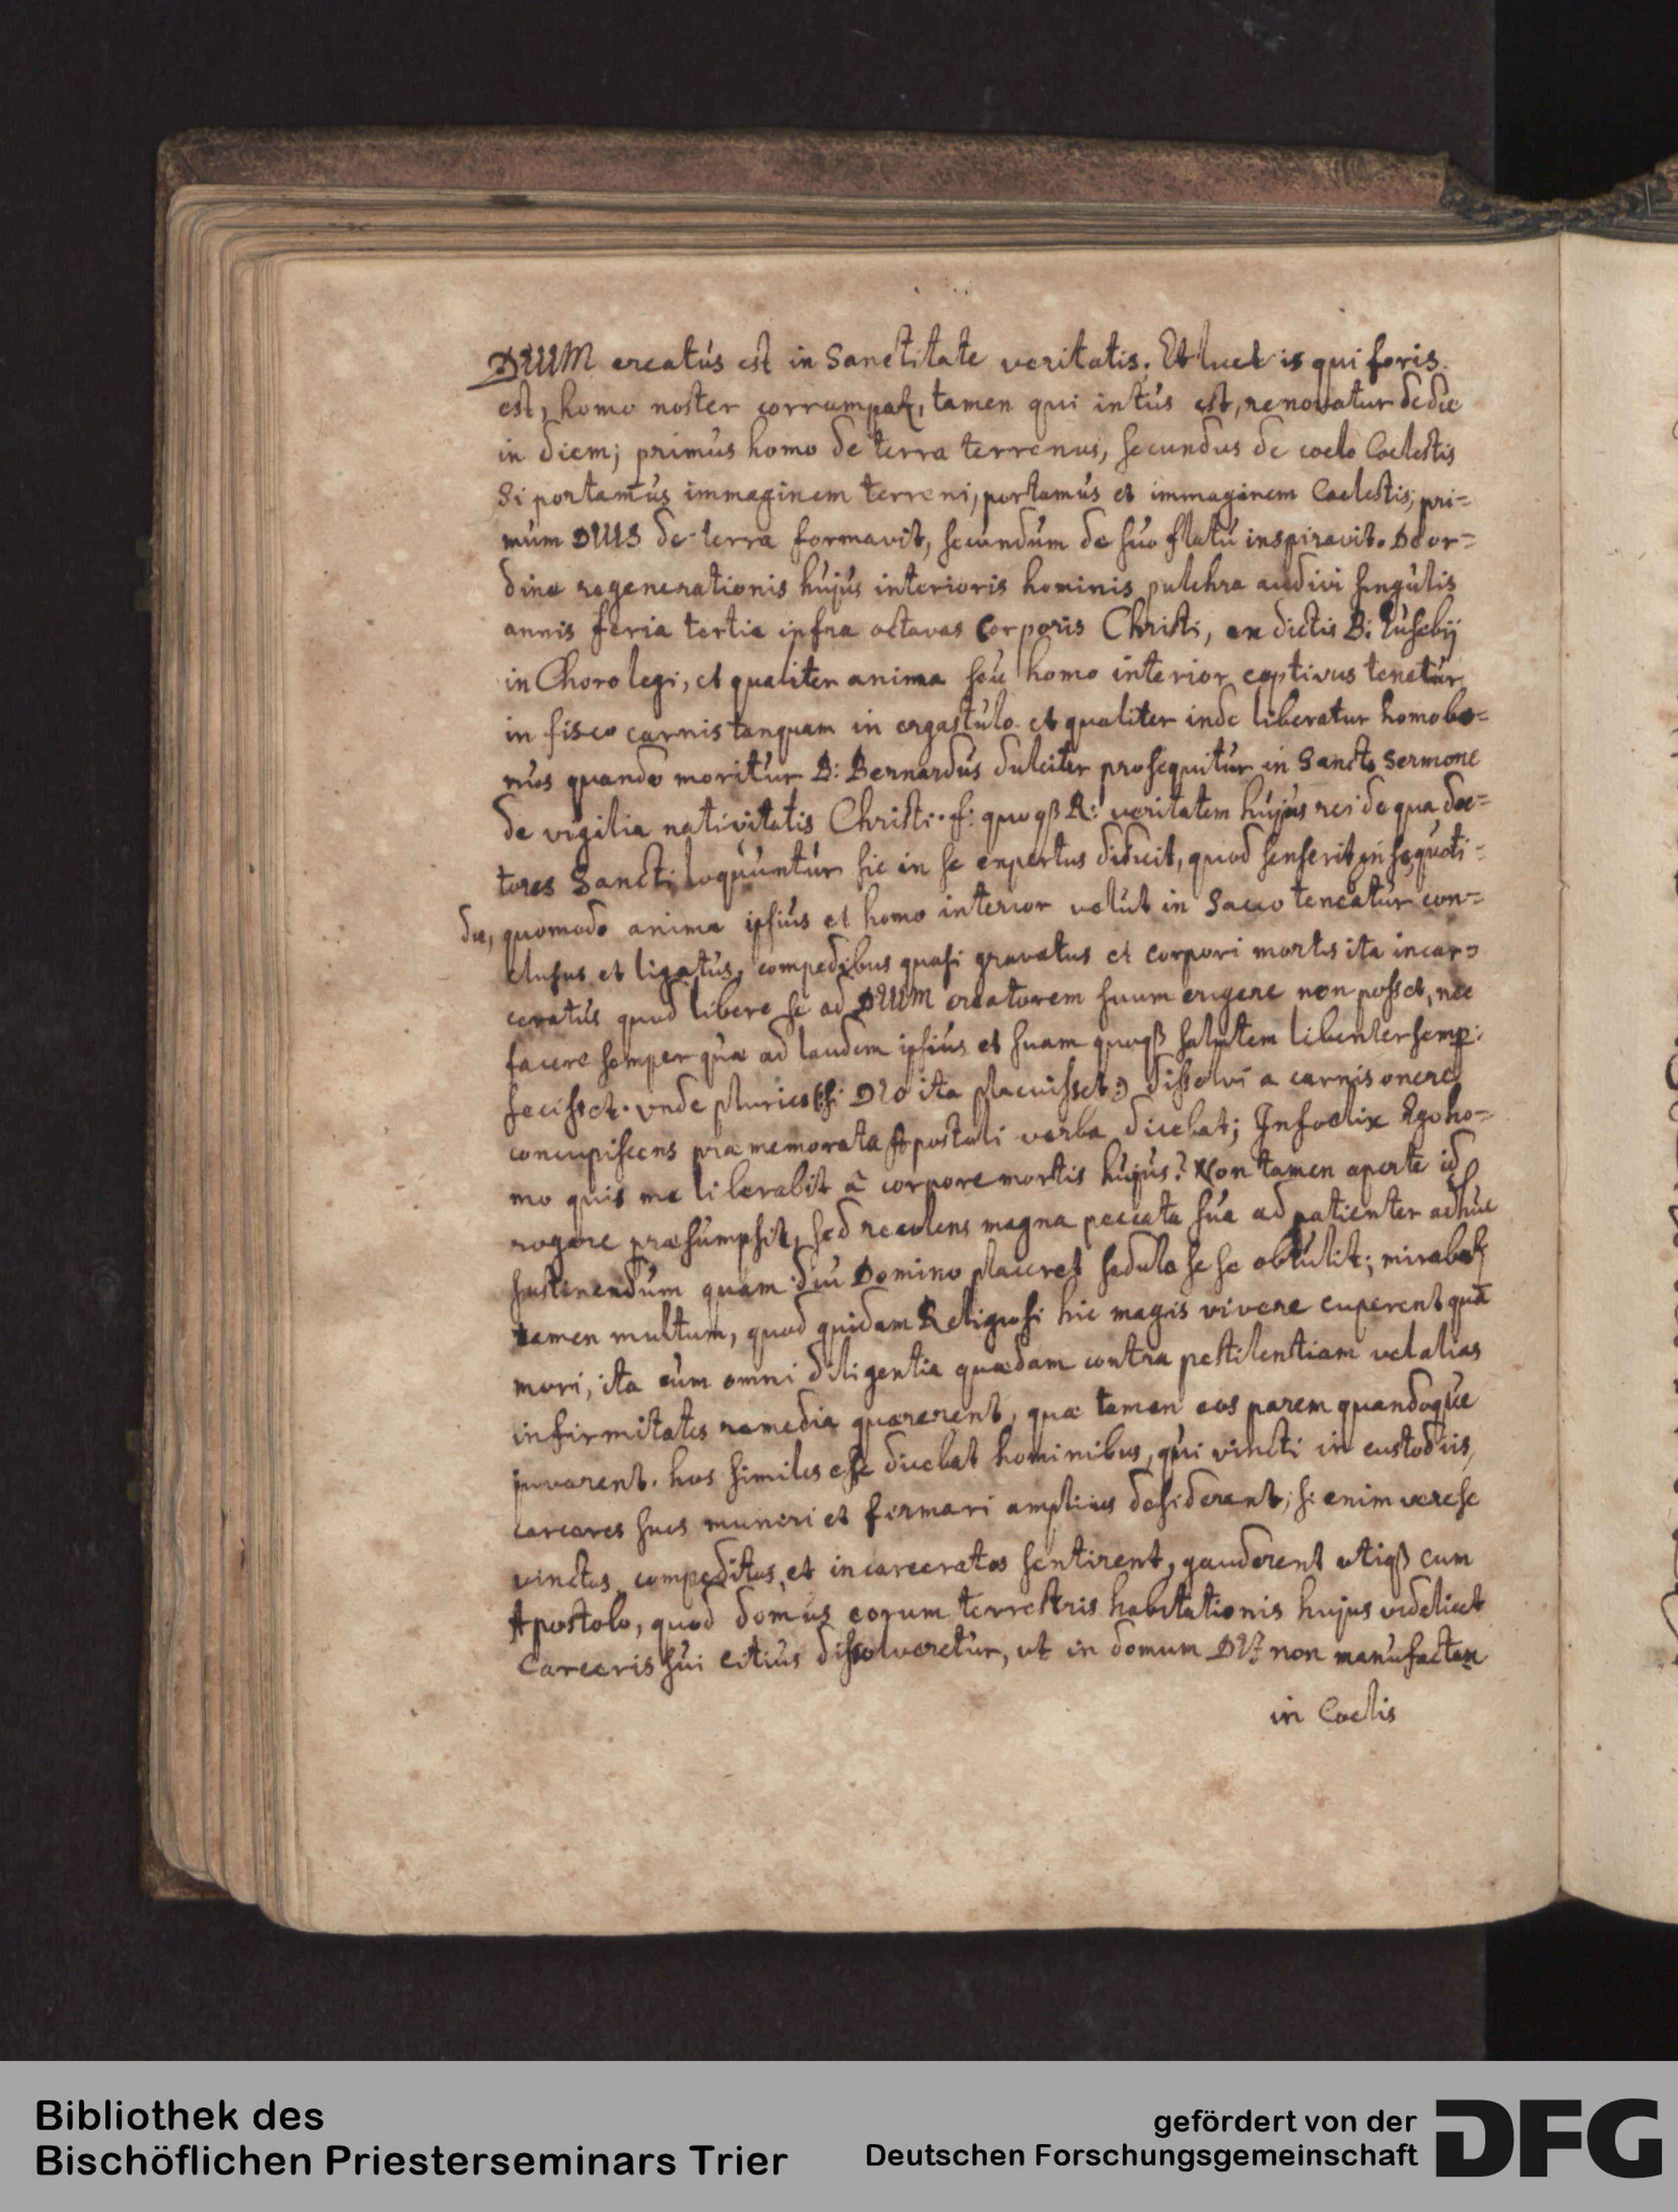 DEUM creatus est in Sanctitate veritatis. Et licet is qui foris
est, homo noster corrumpat, tamen qui intus est, renovatur de die
in diem; primus homo de terra terrenus, secundus de coelo Coelestis
Si portamus immaginem terreni, portamus et immaginem Caelestis; pri=
mum DEUS de terra formavit, secundum de suo flatu inspiravit. De or=
dine regenerationis hujus interioris hominis pulchra audivi singulis
annis feria tertia infra octavas Corporis Christi, ex dictis B: Eusebij
in Choro legi, et qualiter anima seu homo interior captivus tenetur
in fisco carnis tanquam in ergastulo et qualiter inde liberatur homo bo=
nus quando moritur B: Bernardus dulciter prosequitur in Sancto Sermone
de vigilia nativitatis Christi. f: quoqß R: veritatem hujus rei de qua doc=
tores Sancti loquuntur sic in se expertus didicit, quod senserit in se quoti=
die, quomodo anima ipsius et homo interior velut in Sacco teneatur con=
clusus et ligatus, compedibus quasi gravatus et corpori mortis ita incar=
ceratus quod libere se ad DEUM creatorem suum erigere non posset, nec
facere semper quae ad laudem ipsius et suam quoqß salutem libenter semp:
fecisset. vnde pluries (si DEO ita placuisset:) dissolvi a carnis onere
concupiscens praememorata Apostoli verba dicebat; Infoelix Ego ho=
mo quis me liberabit à corpore mortis hujus? Non tamen aperte id
rogare praesumpsit, sed recolens magna peccata sua ad patienter adhuc
sustinendum quam diu Domino placeret sedulo se se obtulit; mirabat
tamen multum, quod quidam Religiosi hic magis vivere cuperent quā
mori, ita cum omni diligentia quaedam contra pestilentiam vel alias
infirmitates remedia quaererent, quae tamen eos parem quandoque
juvarent. hos similes esse dicebat hominibus, qui vincti in custodiis,
carceres suos muneri et firmari amplius desiderant; si enim vere se
vinctos compeditos, et incarceratos sentirent, gauderent utiqß cum
Apostolo, quod domus eorum terrestris habitationis hujus videlicet
Carceris sui citius dissolveretur, ut in domum DEI non manufactam
in Coelis
Bibliothek des
Bischöflichen Priesterseminars Trier
gefördert von der
Deutschen Forschungsgemeinschaft
DFG